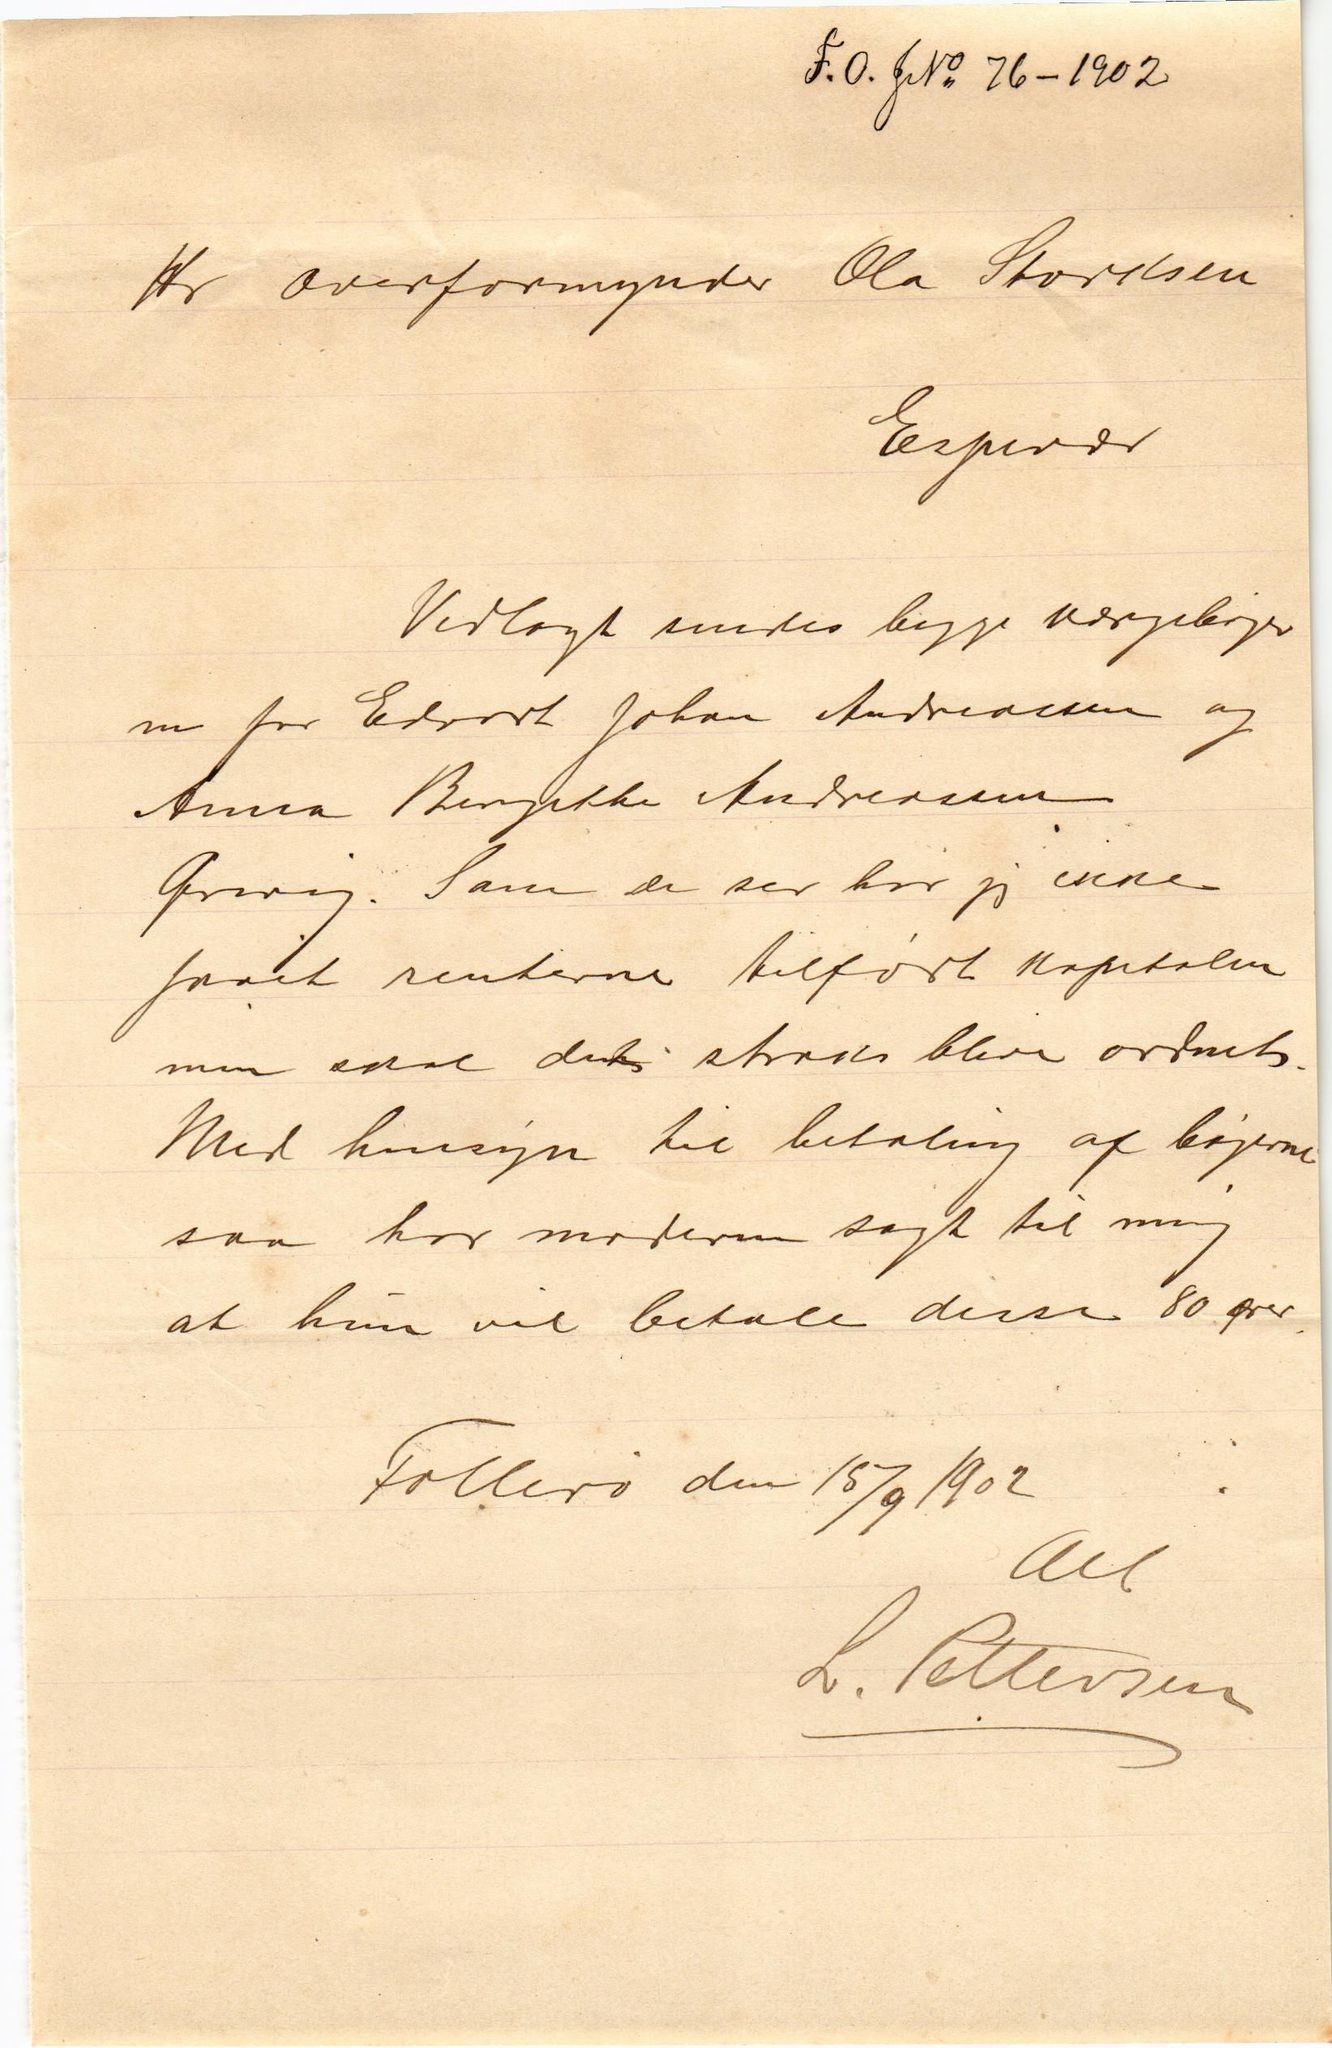 F.O. JNo 76-1902
Hr overformynder Ola Storksen
Espevær
Vedlagt sendes begge værgebøger
ne for Edvart Johan Andreassen og
Anna Bergitte Andreassen
Grevig. Som de ser har jeg ikke
faaet renterne tilført kapitalen
men skal dets straks blive ordnet.
Med hensyn til betaling af bøgerne
saa har moderen sagt til mig
at hun vil betale disse 80 ører.
Follerø den 15/9 1902
L. Pettersen